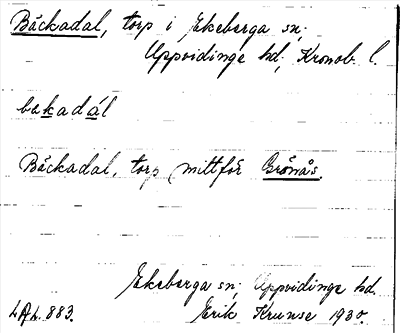 Bäckadal, torp i Ekeberga sn;
Uppvidinge hd, Kronob. l.
bakadál
Bäckadal, torp mittför Grönås.
Ekeberga sn; Uppvidinge hd.
LAL. 883. Erik Krunse 1930.